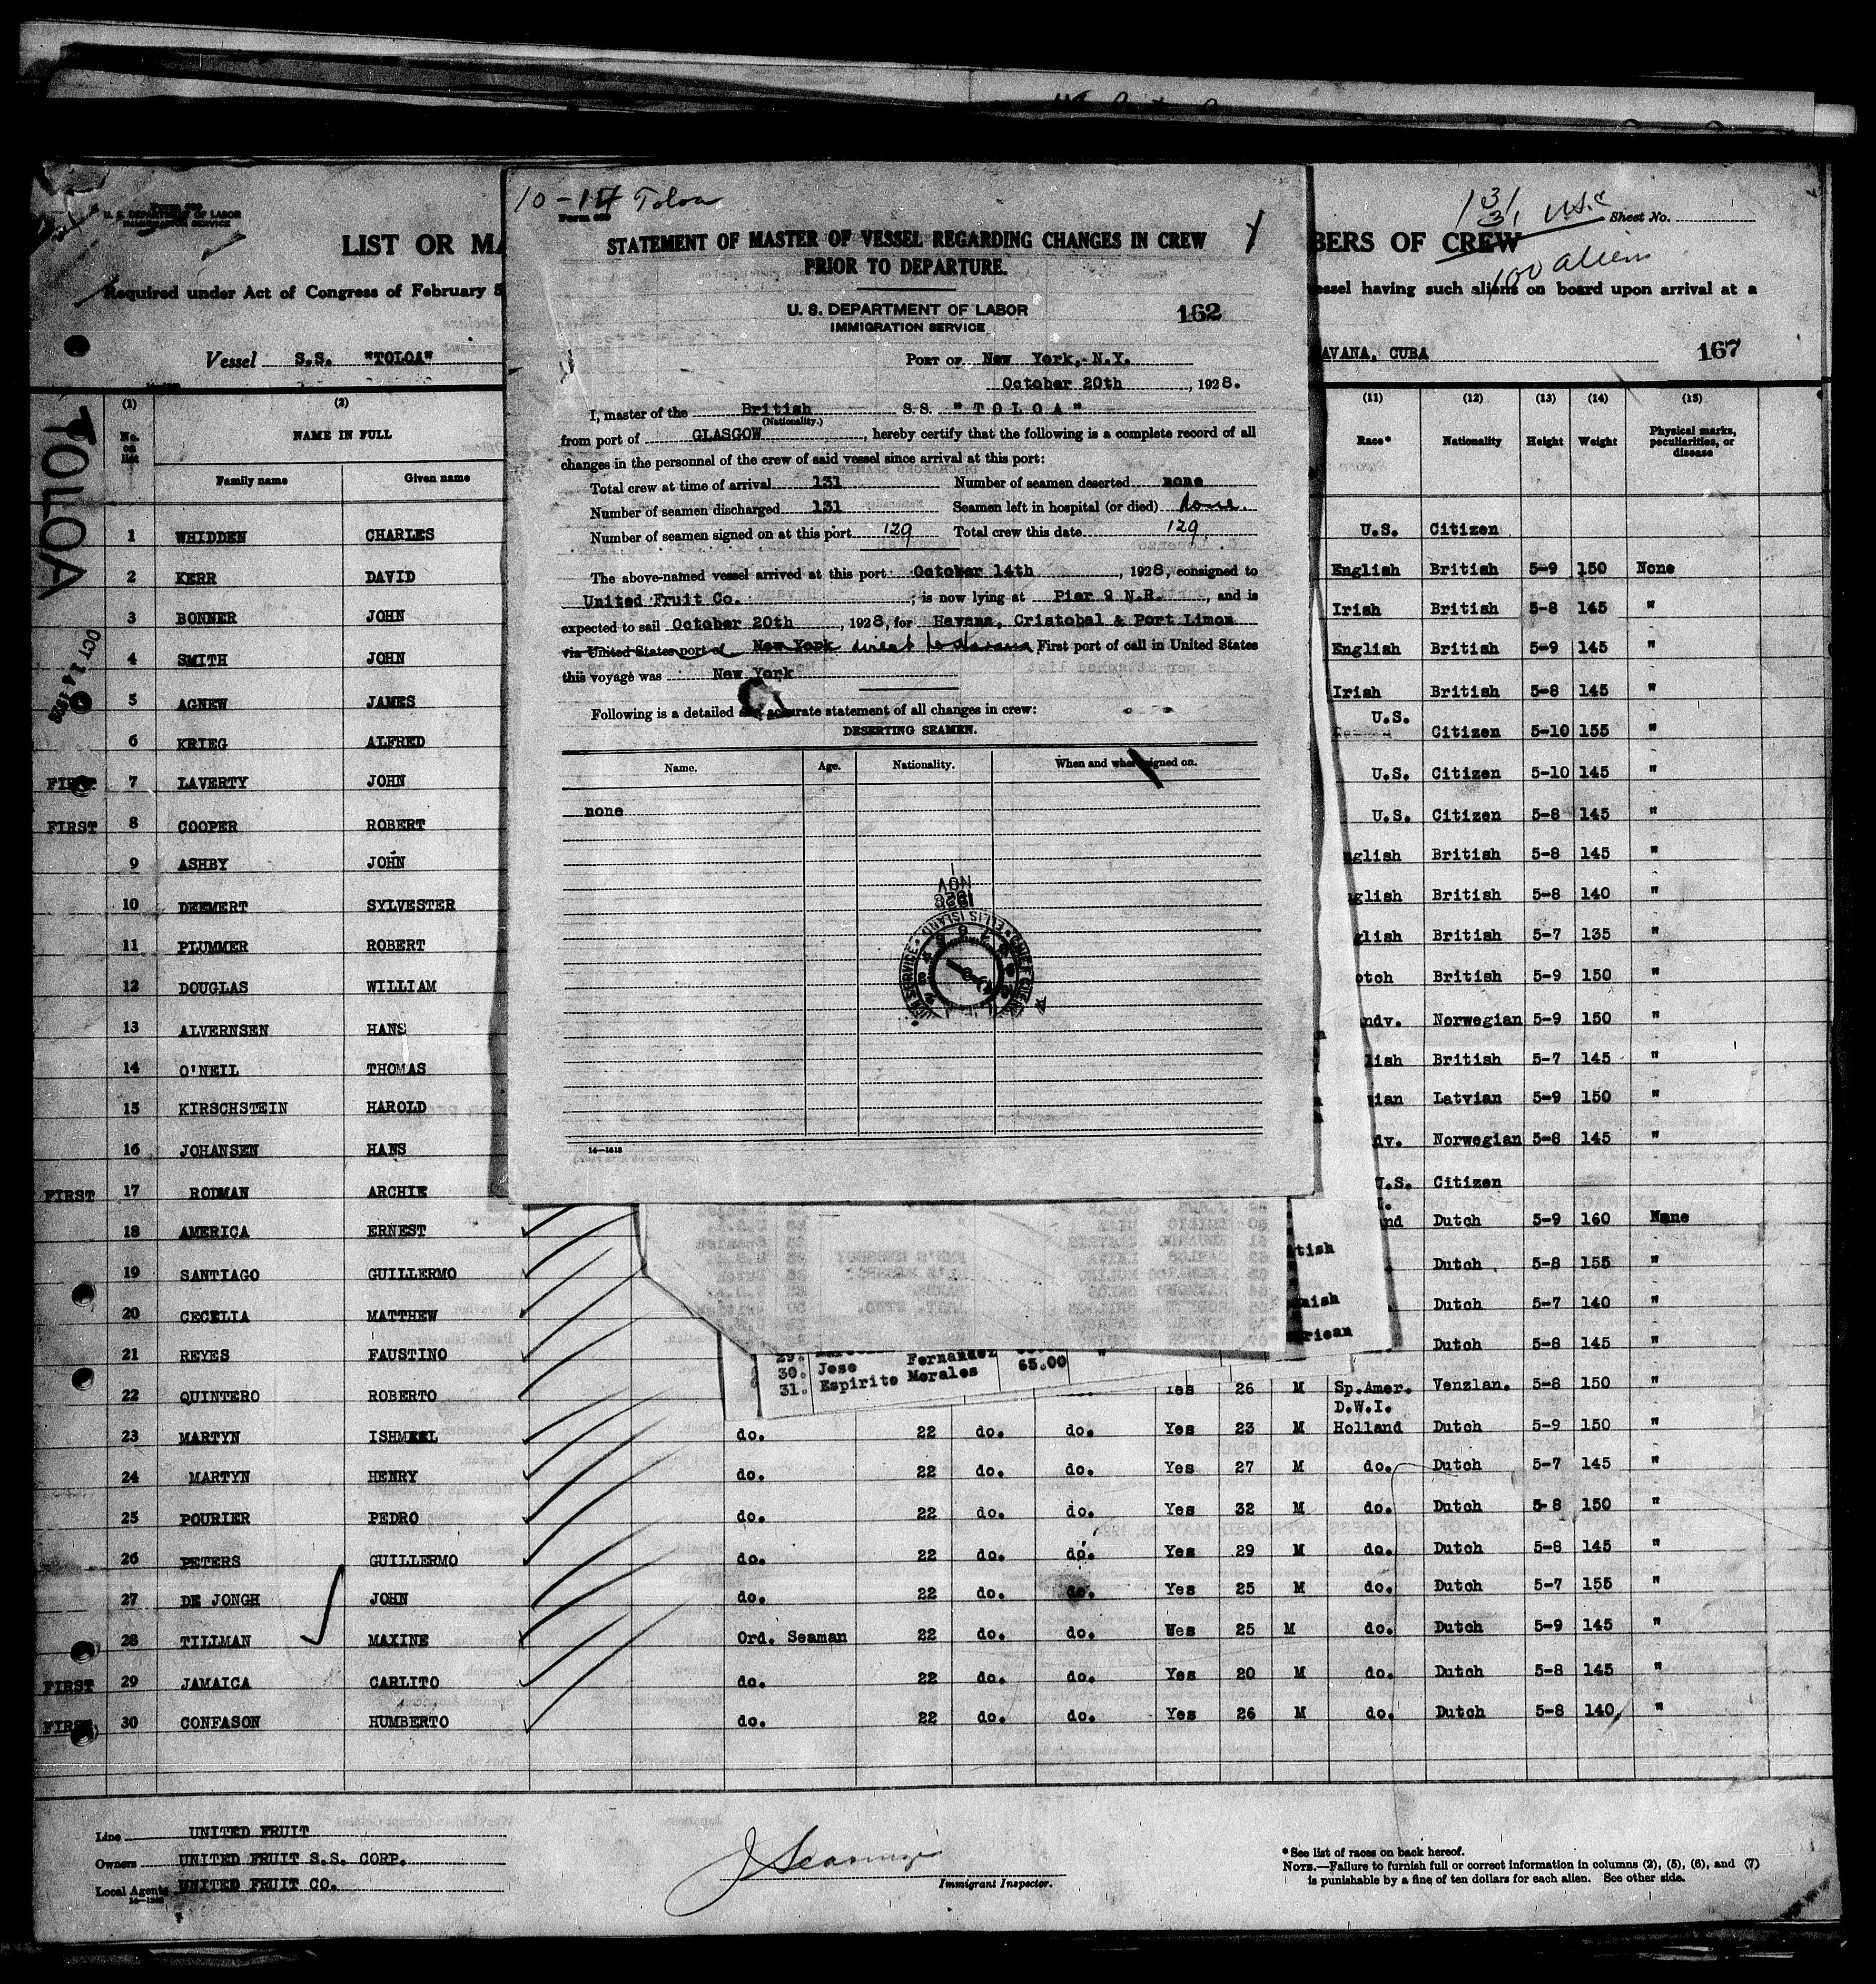 10-14 Toloa
STATEMENT OF MASTER OF VESSEL REGARDING CHANGES IN CREW
PRIOR TO DEPARTURE.
U. S. DEPARTMENT OF LABOR
IMMIGRATION SERVICE
162
PORT OF New York, N.Y.
October 20th, 1928.
I, master of the British S.S. "TOLOA"
(Nationality.)
from port of GLASGOW, hereby certify that the following is a complete record of all
changes in the personnel of the crew of said vessel since arrival at this port:
Total crew at time of arrival 131 Number of seamen deserted none
Number of seamen discharged 131 Seamen left in hospital (or died) None.
Number of seamen signed on at this port 129 Total crew this date 129
The above-named vessel arrived at this port October 14th, 1928, consigned to
United Fruit Co. ; is now lying at Pier 9 N.R., and is
expected to sail October 20th, 1928, for Havana, Cristobal & Port Limon
via United States port of New York direct to Havana First port of call in United States
this voyage was New York
Following is a detailed and accurate statement of all changes in crew:
DESERTING SEAMEN.
Name. Age. Nationality. When and where signed on.
none
NOV
1928
ELLIS ISLAND
14—1613
U. S. DEPARTMENT OF LABOR
IMMIGRATION SERVICE
LIST OR MA
BERS OF CREW
131 Sheet No.
100 aliens
Required under Act of Congress of February 5
essel having such aliens on board upon arrival at a
Vessel S.S. "TOLOA"
AVANA, CUBA 167
TOLOA
OCT 14 1928
(1) (2) (11) (12) (13) (14) (15)
No. on list NAME IN FULL Race* Nationality Height Weight Physical marks, peculiarities, or disease
Family name Given name
1 WHIDDEN CHARLES U.S. Citizen
2 KERR DAVID English British 5-9 150 None
3 BONNER JOHN Irish British 5-8 145 "
4 SMITH JOHN English British 5-9 145 "
5 AGNEW JAMES Irish British 5-8 145 "
6 KRIEG ALFRED U.S. Citizen 5-10 155 "
FIRST 7 LAVERTY JOHN U.S. Citizen 5-10 145 "
FIRST 8 COOPER ROBERT U.S. Citizen 5-8 145 "
9 ASHBY JOHN nglish British 5-8 145 "
10 DEEMERT SYLVESTER glish British 5-8 140 "
11 PLUMMER ROBERT glish British 5-7 135 "
12 DOUGLAS WILLIAM otch British 5-9 150 "
13 ALVERNSEN HANS ndv. Norwegian 5-9 150 "
14 O'NEIL THOMAS lish British 5-7 145 "
15 KIRSCHSTEIN HAROLD ian Latvian 5-9 150 "
16 JOHANSEN HANS dv. Norwegian 5-8 145 "
FIRST 17 RODMAN ARCHIE U.S. Citizen
18 AMERICA ERNEST nd Dutch 5-9 160 None
19 SANTIAGO GUILLERMO Dutch 5-8 155 "
20 CECELIA MATTHEW Dutch 5-7 140 "
21 REYES FAUSTINO Dutch 5-8 145 "
30. Jose Fernandez
31. Espirito Morales 65.00
22 QUINTERO ROBERTO Yes 26 M Sp.Amer. Venzlan. 5-8 150 "
D.W.I.
23 MARTYN ISHMEEL do. 22 do. do. Yes 23 M Holland Dutch 5-9 150 "
24 MARTYN HENRY do. 22 do. do. Yes 27 M do. Dutch 5-7 145 "
25 POURIER PEDRO do. 22 do. do. Yes 32 M do. Dutch 5-8 150 "
26 PETERS GUILLERMO do. 22 do. do. Yes 29 M do. Dutch 5-8 145 "
27 DE JONGH JOHN do. 22 do. do. Yes 25 M do. Dutch 5-7 155 "
28 TILLMAN MAXINE Ord. Seaman 22 do. do. Yes 25 M do. Dutch 5-9 145 "
FIRST 29 JAMAICA CARLITO do. 22 do. do. Yes 20 M do. Dutch 5-8 145 "
FIRST 30 CONFASON HUMBERTO do. 22 do. do. Yes 26 M do. Dutch 5-8 140 "
Line UNITED FRUIT
Owners UNITED FRUIT S.S. CORP.
Local Agents UNITED FRUIT CO.
Immigrant Inspector.
*See list of races on back hereof.
NOTE.—Failure to furnish full or correct information in columns (2), (5), (6), and (7)
is punishable by a fine of ten dollars for each alien. See other side.